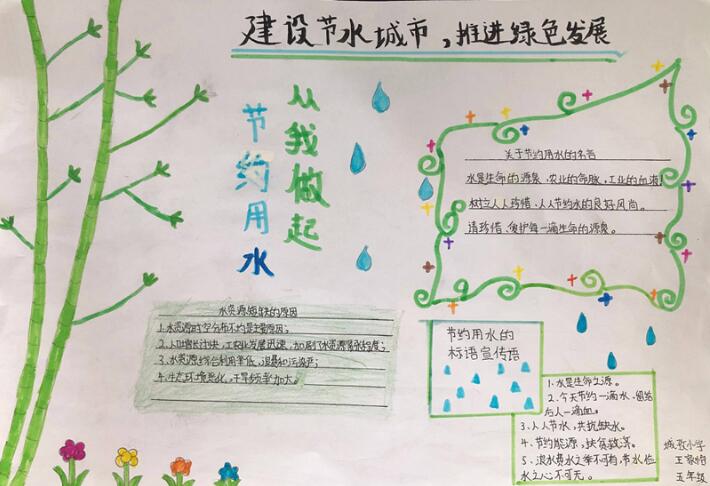 建设节水城市，推进绿色发展
从我做起
节约用水
关于节约用水的名言
水是生命的源泉、农业的命脉、工业的血液！
树立人人珍惜、人人节约水的良好风尚。
请珍惜、爱护每一滴生命的源泉。
水资源短缺的原因
1、水资源时空分布不均是主要原因；
2、人口增长过快，工农业发展迅速，加剧了水资源紧张程度；
3、水资源综合利用率低，浪费和污染严
4、生态环境恶化，干旱频率加大。
节约用水的
标语宣传语
1、水是生命之源。
2、今天节约一滴水、留给
后人一滴血。
3、人人节水，共抗缺水。
4、节约能源，扶贫救济。
5、浪水费水之举不可有，节水
水之心不可无。
小学
五年级